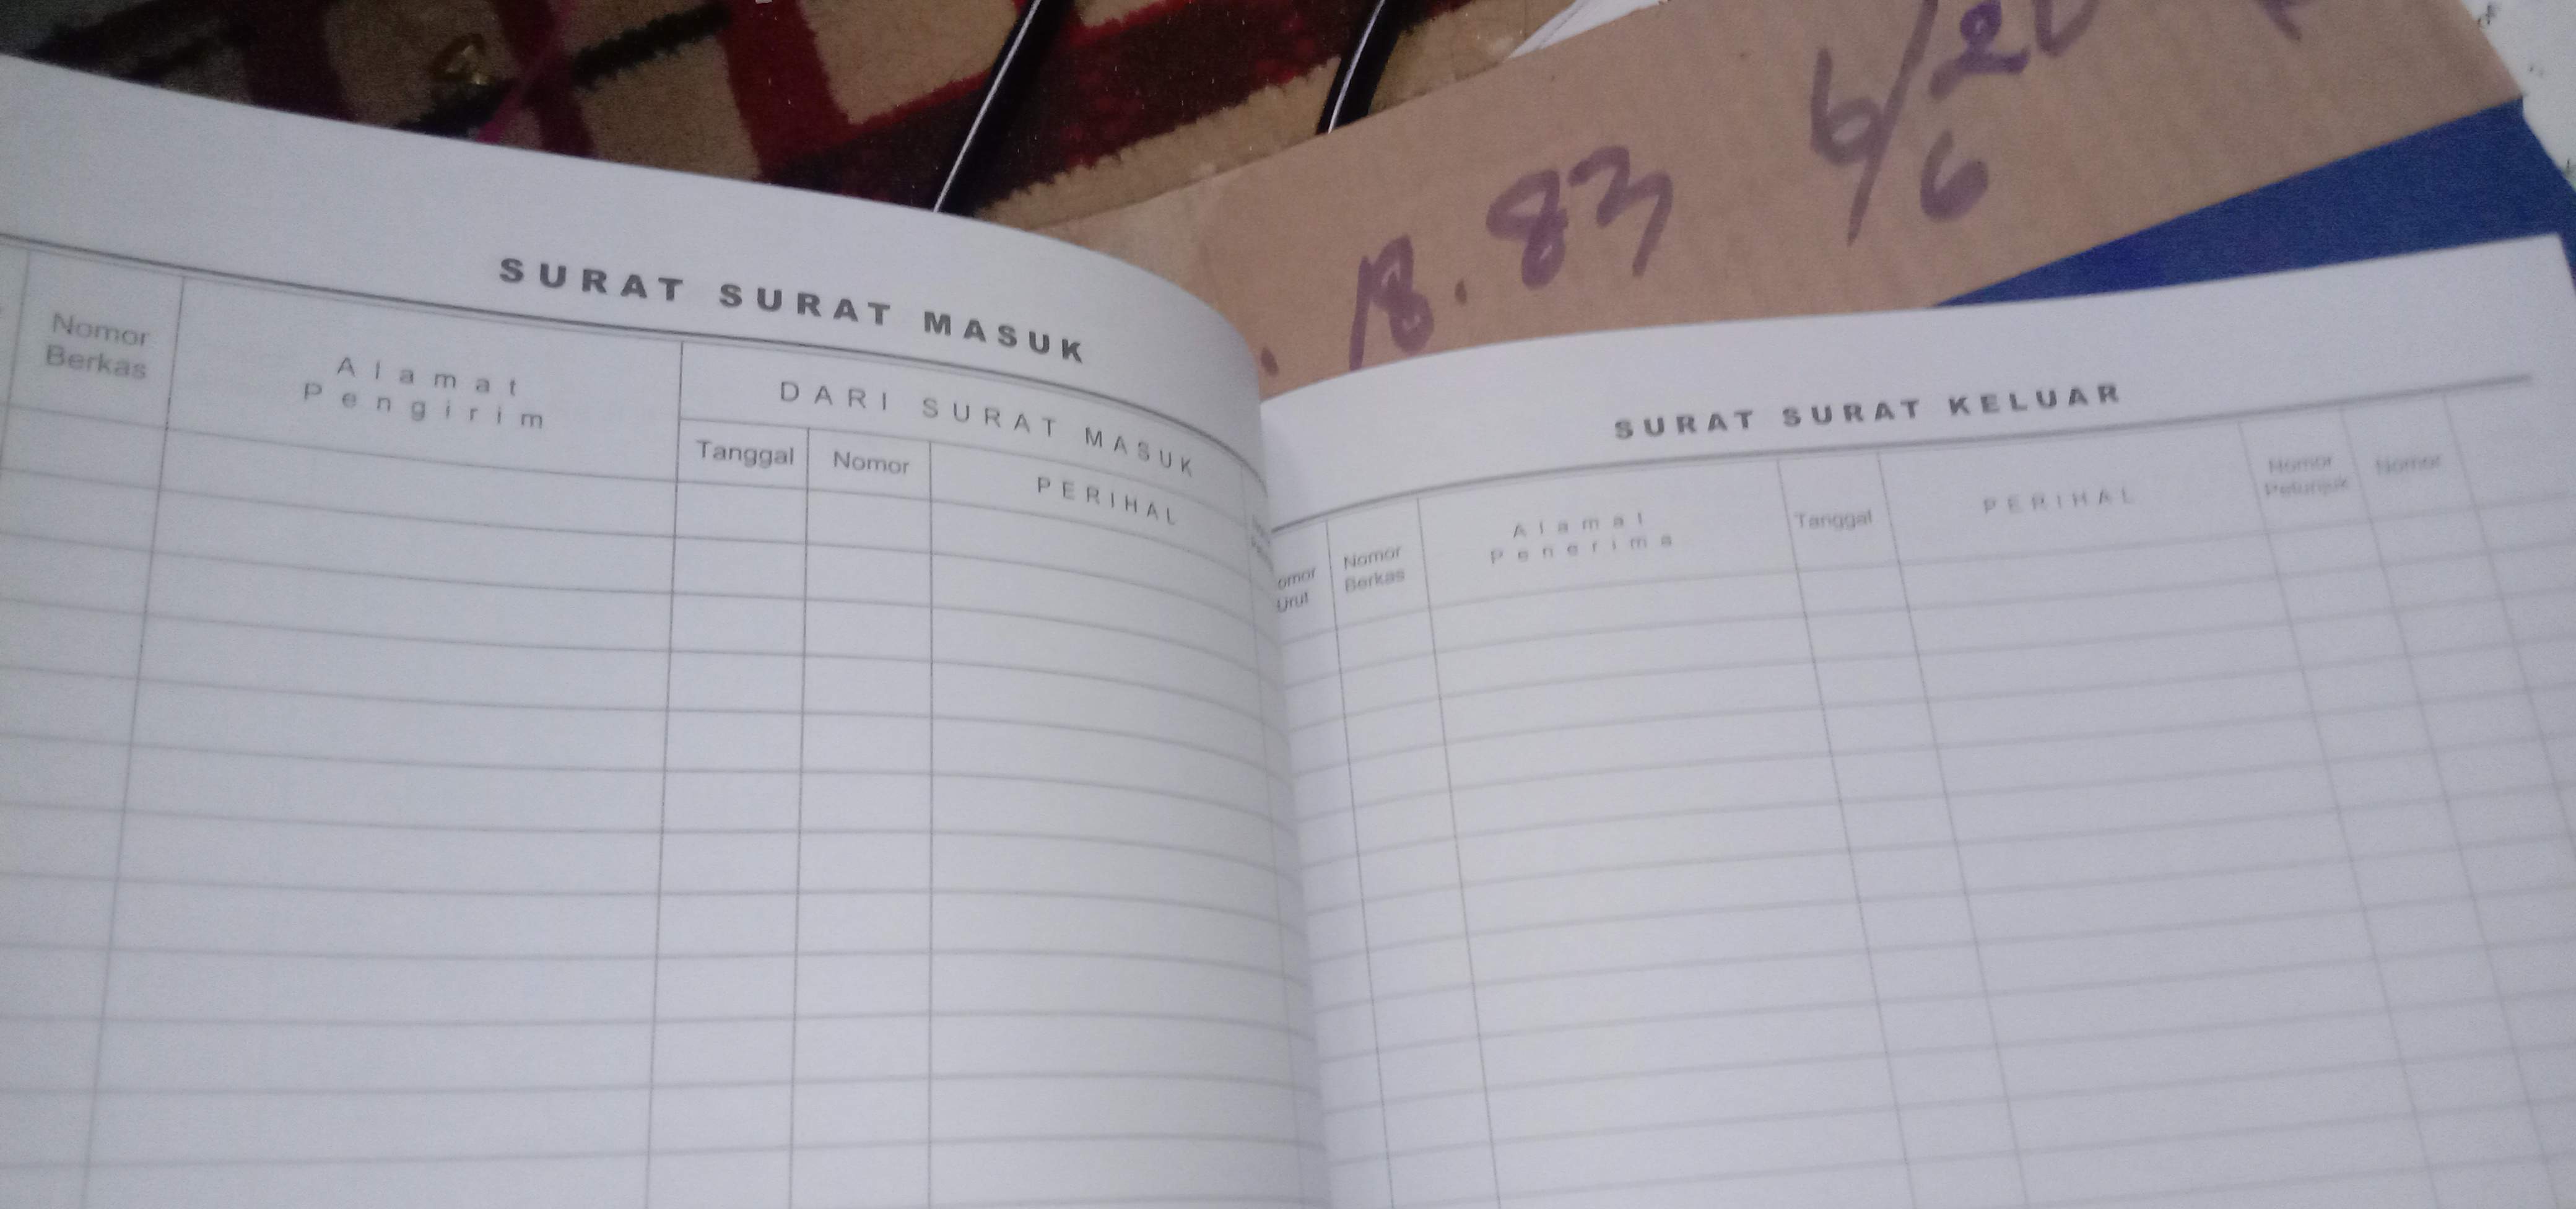 18.83
6/20
6
SURAT SURAT MASUK
Nomor
Berkas
Alamat
Pengirim
DARI SURAT MASUK
Tanggal
Nomor
PERIHAL
SURAT SURAT KELUAR
omor
Urut
Nomor
Berkas
Alamat
Penerima
Tanggal
PERIHAL
Nomor
Petunjuk
Nomor